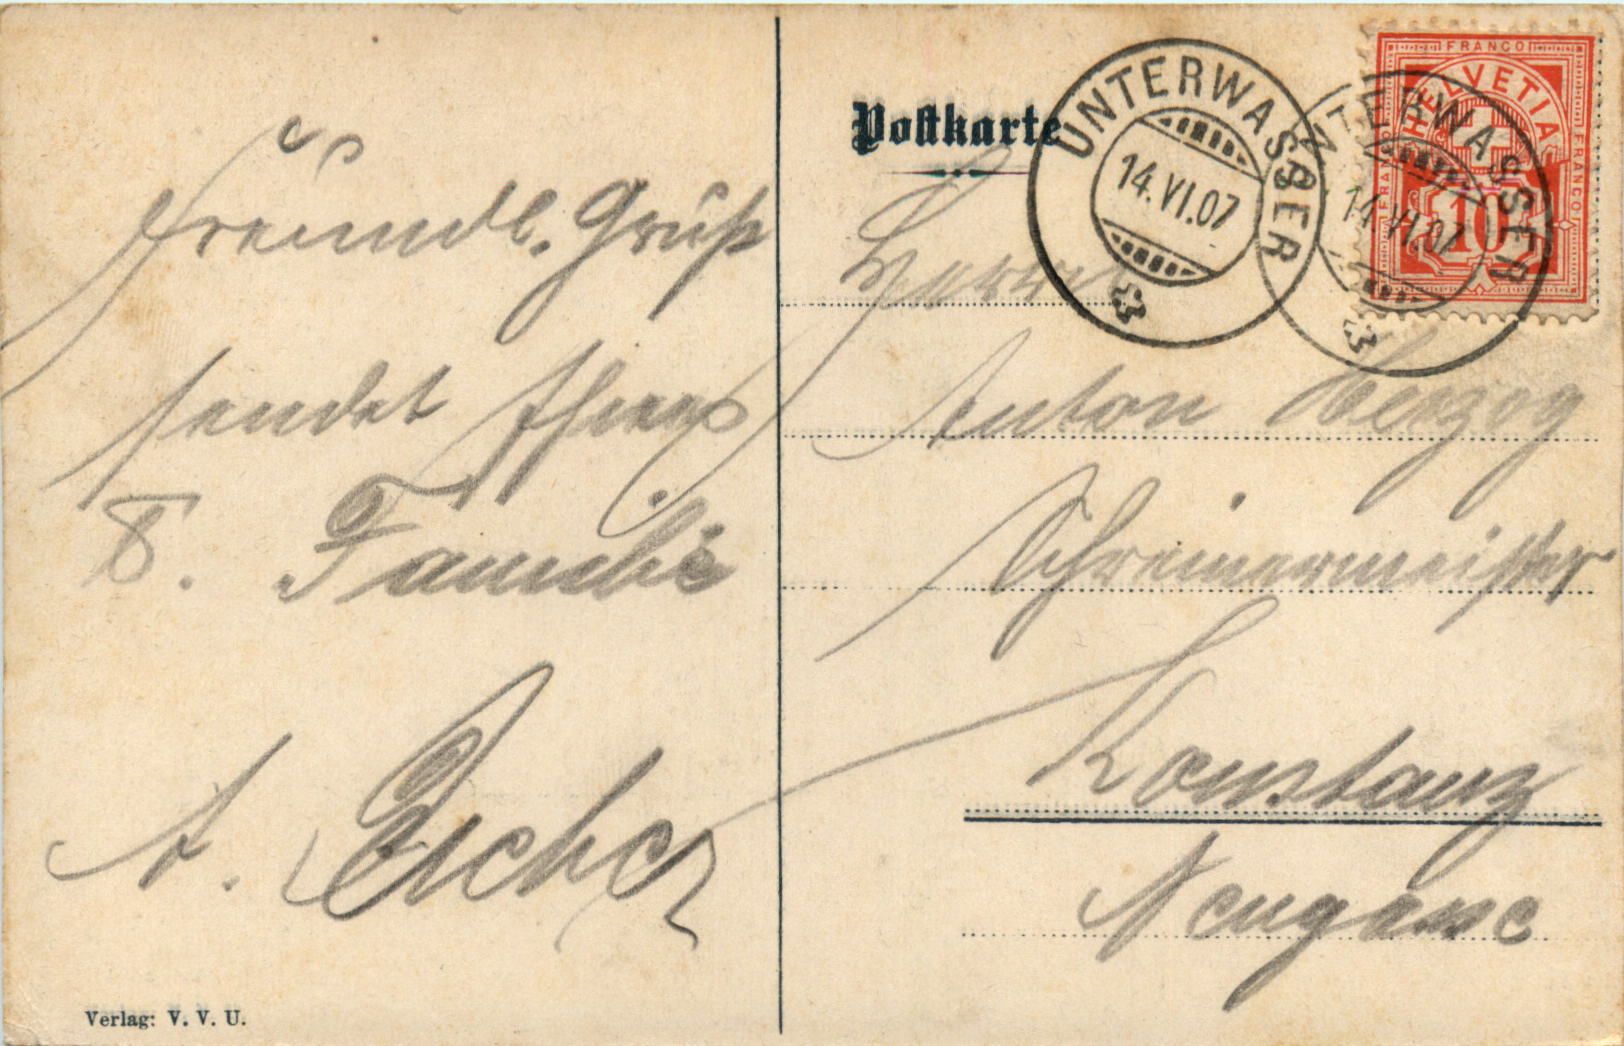 Freundl. Gruß
sendet Ihnen
&. Familie
A. Eicher
Verlag: V. V. U.
Postkarte
UNTERWASSER
14.VI.07
UNTERWASSER
14.VI.07
FRANCO
HELVETIA
FRANCO
FRANCO
10
Herrn
Anton Herzog
Schreinermeister
Konstanz
Neugasse